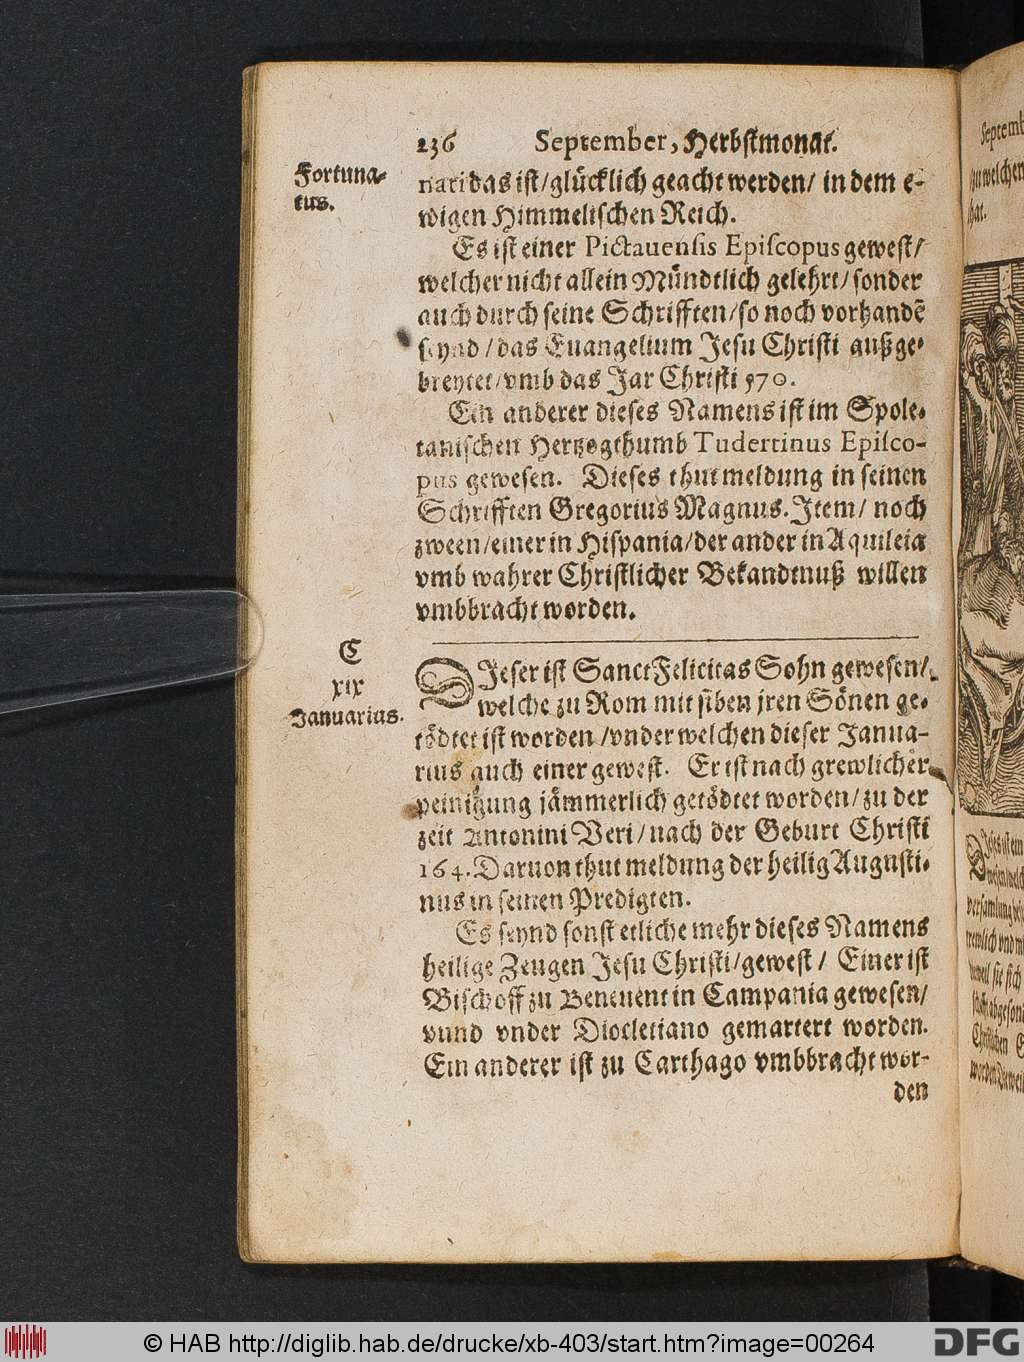 236 September, Herbstmonat.
Fortuna-
tus.
nati das ist/glücklich geacht werden/ in dem e-
wigen Himmelischen Reich.
Es ist einer Pictauensis Episcopus gewest/
welcher nicht allein Mündtlich gelehrt/sonder
auch durch seine Schrifften/so noch vorhandẽ
seynd/das Euangelium Jesu Christi außge-
breytet/vmb das Jar Christi 570.
Ein anderer dieses Namens ist im Spole-
tanischen Hertzogthumb Tudertinus Episco-
pus gewesen. Dieses thut meldung in seinen
Schrifften Gregorius Magnus. Item/ noch
zween/einer in Hispania/der ander in Aquileia
vmb wahrer Christlicher Bekandtnuß willen
vmbbracht worden.
C
xix
Januarius.
DIeser ist Sanct Felicitas Sohn gewesen/
welche zu Rom mit siben jren Sönen ge-
tödtet ist worden/vnder welchen dieser Janua-
rius auch einer gewest. Er ist nach grewlicher
peinigung jämmerlich getödtet worden/zu der
zeit Antonini Veri/nach der Geburt Christi
164. Daruon thut meldung der heilig Augusti-
nus in seinen Predigten.
Es seynd sonst etliche mehr dieses Namens
heilige Zeugen Jesu Christi/gewest/ Einer ist
Bischoff zu Beneuent in Campania gewesen/
vnnd vnder Diocletiano gemartert worden.
Ein anderer ist zu Carthago vmbbracht wor-
den
Septemb
zu welchen
hat.
versamlung
weil sie sich
Christlichen
© HAB http://diglib.hab.de/drucke/xb-403/start.htm?image=00264
DFG